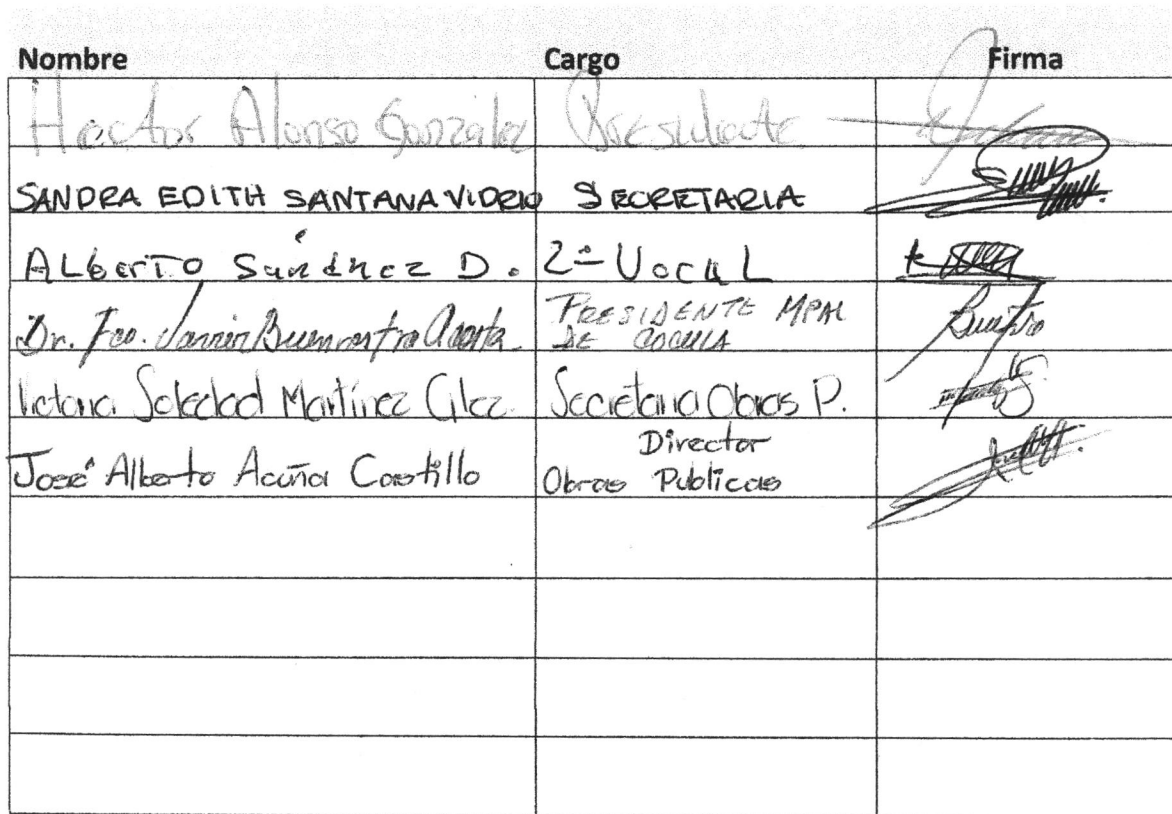 Nombre Cargo Firma
Hector Alonso Gonzalez Presidente
SANDRA EDITH SANTANA VIDRIO SECRETARIA
ALberTO Sánchez D. 2º VocaL
Dr. Fco. Javier Buenrostro Acosta PRESIDENTE MPAL
DE COCULA
Victoria Soledad Martínez Glez. Secretaria Obras P.
José Alberto Acuña Castillo Director
Obras Publicas